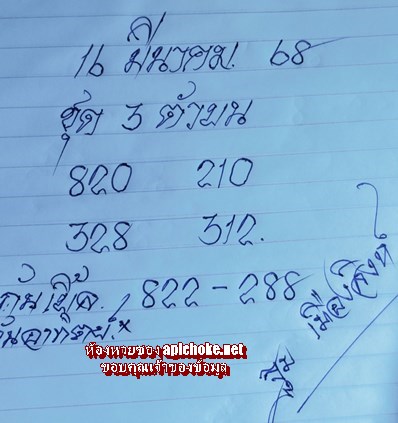 16 มีนาคม. 68
ชุด 3 ตัวบน
820 210
328 312.
กันเบิ้ล. 822 - 288
วันอาทิตย์.*
เมืองสิงห์
ห้องหวยซอง apichoke.net
ขอบคุณเจ้าของข้อมูล